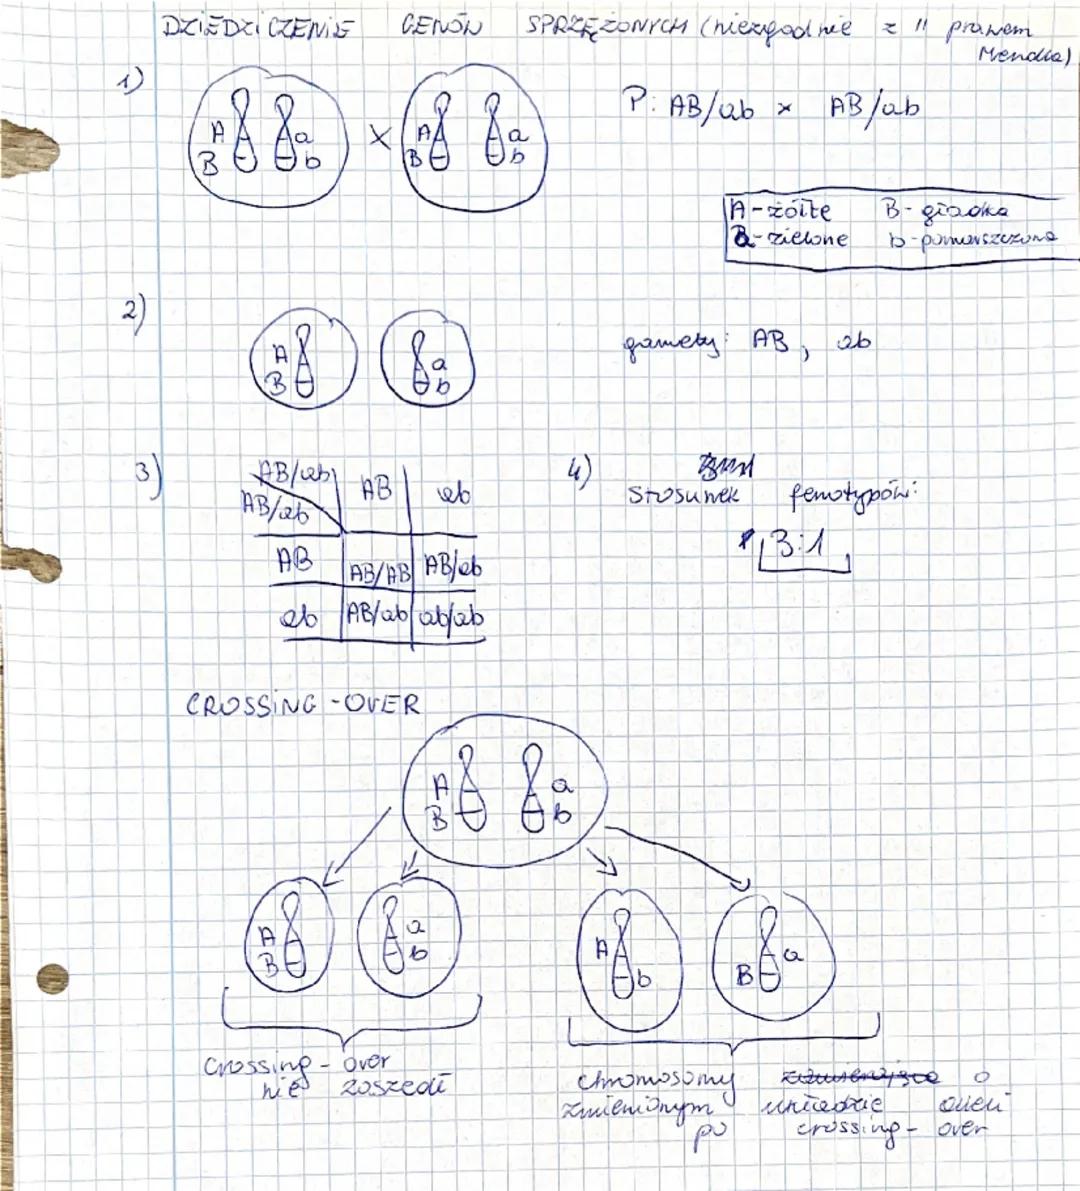 DZIEDZICZENIE GENÓW SPRZĘŻONYCH (niezgodnie z II prawem
Mendla)
1)
A a
B b
X
A a
B b
P: AB/ab x AB/ab
A - żółte B - gładka
a - zielone b - pomarszczona
2)
A a
B b
gamety: AB, ab
3)
AB/ab AB ab
AB/ab
AB AB/AB AB/ab
ab AB/ab ab/ab
4)
Stosunek fenotypów:
3:1
CROSSING - OVER
A a
B b
A a
B b
A b
B a
Crossing - over
nie zaszedł
chromosomy o
zmienionym układzie alleli
po crossing - over